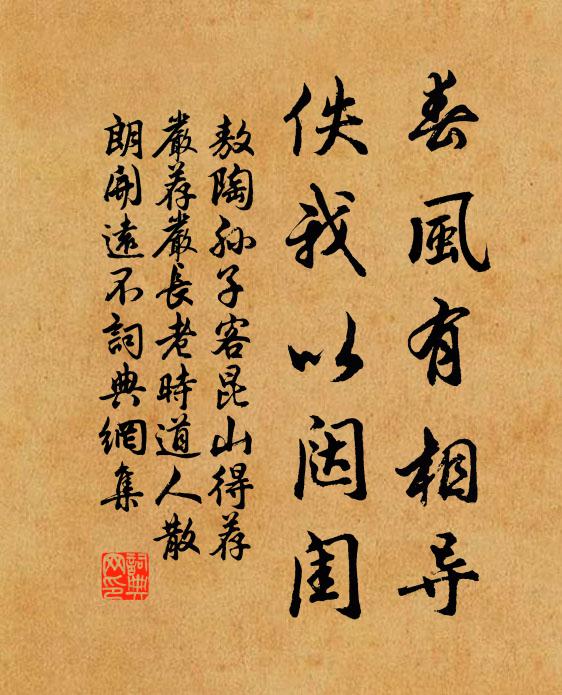 春風有相导
佚我以闺
敖陶孫子客昆山得荐
嚴荐嚴長老時道人散
朗開遠不詞典網集
詞典网印